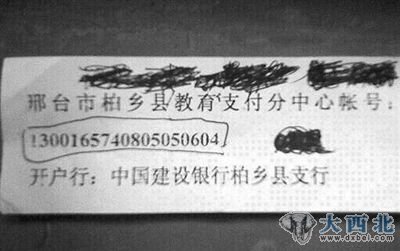 邢台市柏乡县教育支付分中心帐号:
1300165740805050604
开户行:中国建设银行柏乡县支行
大西北
www.dxbei.com